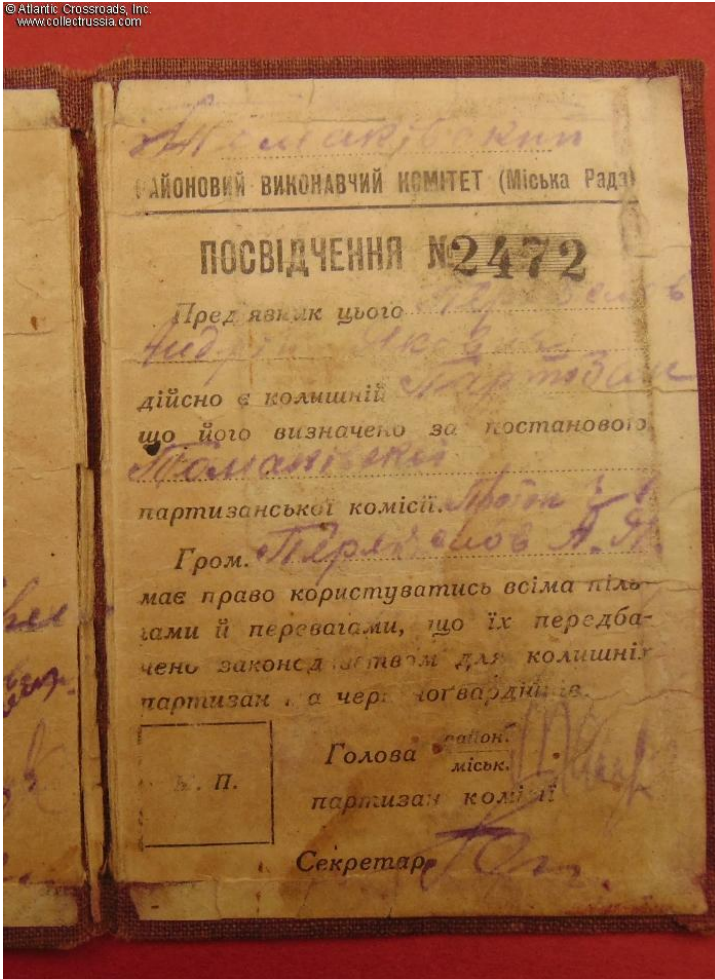 © Atlantic Crossroads, Inc.
www.collectrussia.com
Томаківский
РАЙОНОВИЙ ВИКОНАВЧИЙ КОМІТЕТ (Міська Рада)
ПОСВІДЧЕННЯ № 2472
Пред'явник цього
Андрій Якович
дійсно є колишній Партизан
що його визначено за постановою
Томаківскої
партизанської комісії.
Гром. А. Я.
має право користуватись всіма піль-
гами й перевагами, що їх передба-
чено законодавством для колишніх
партизан та червоногвардійців.
Голова район.
міськ.
М. П.
партизан комісії
Секретар